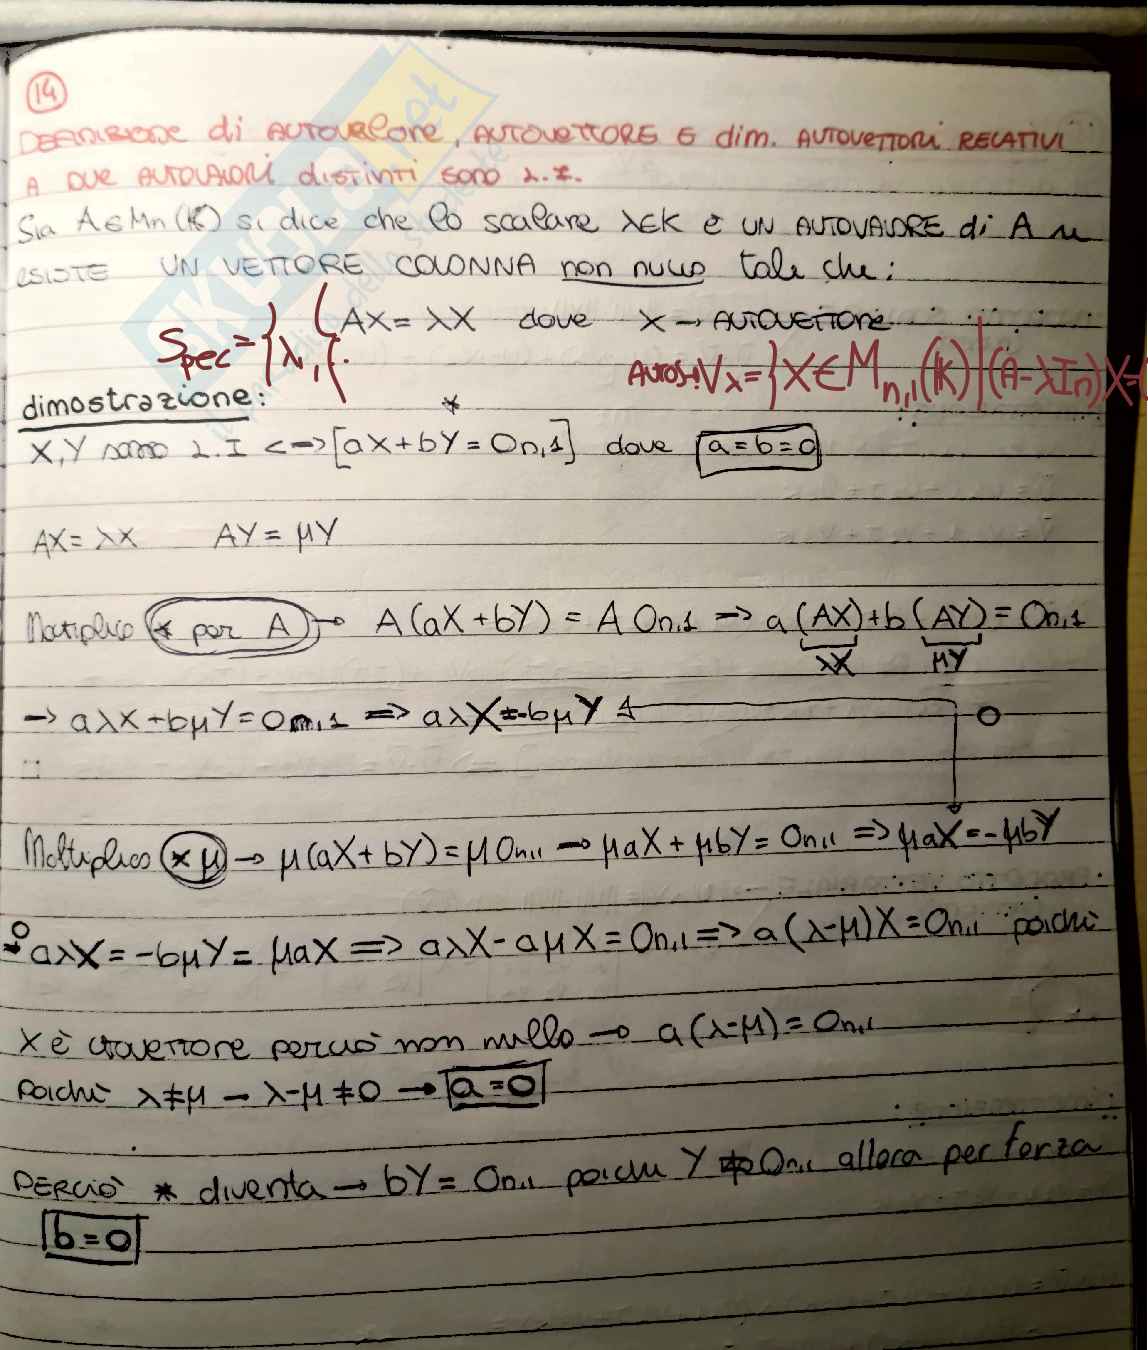 14
DEFINIZIONE di AUTOVALORE, AUTOVETTORE E dim. AUTOVETTORI RELATIVI
A DUE AUTOVALORI distinti sono L.I.
Sia A∈Mn(K) si dice che lo scalare λ∈K è UN AUTOVALORE di A se
ESISTE UN VETTORE COLONNA non nullo tale che:
AX = λX dove X → AUTOVETTORE
Spec = {λ, {.
Vλ = {X ∈ M n,1 (K) | (A-λIn)X=0
dimostrazione:
*
X,Y sono L.I <-> [aX+bY = 0n,1] dove a=b=0
AX = λX AY = μY
Moltiplico * per A → A(aX+bY) = A 0n,1 => a(AX)+b(AY) = 0n,1
λX μY
→ aλX+bμY = 0n,1 => aλX=-bμY
o
Moltiplico * μ → μ(aX+bY) = μ 0n,1 → μaX + μbY = 0n,1 => μaX=-μbY
o
→ aλX = -bμY = μaX => aλX - aμX = 0n,1 => a(λ-μ)X = 0n,1 poichè
X è autovettore perciò non nullo → a(λ-μ) = 0n,1
Poichè λ≠μ → λ-μ ≠0 → a=0
PERCIÒ * diventa → bY = 0n,1 poichè Y ≠ 0n,1 allora per forza
b=0
SKUOLA.net